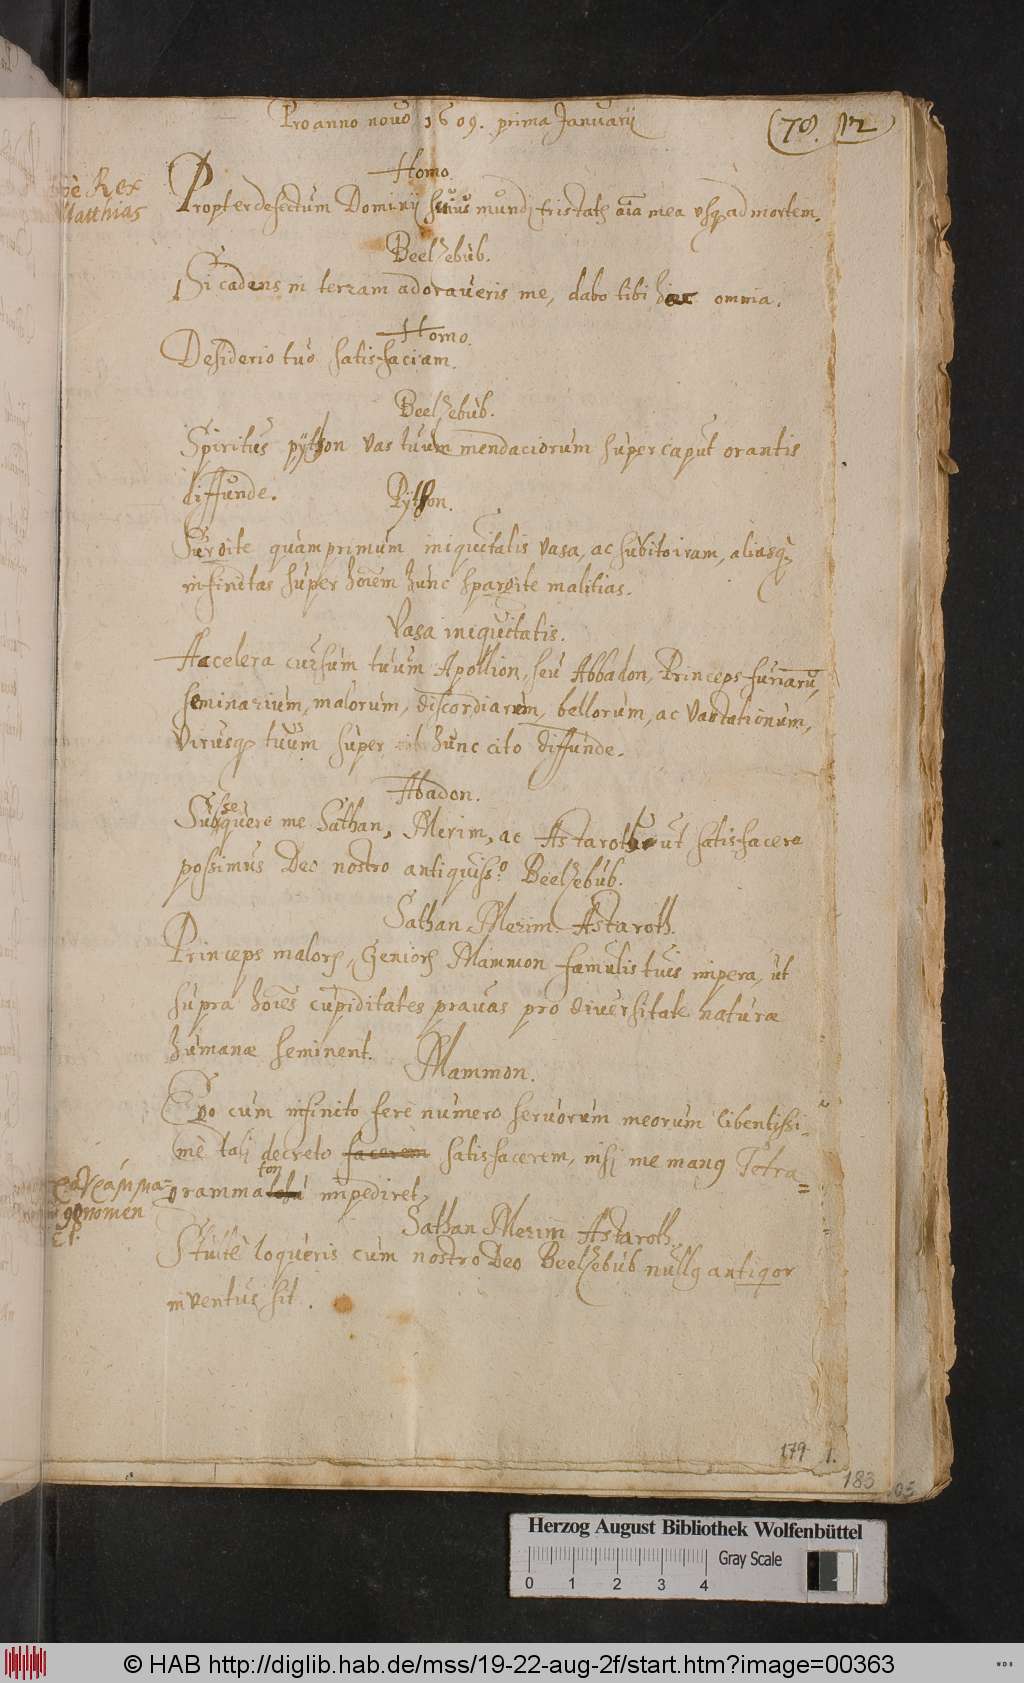 Pro anno novo 1609. prima Januarij
(78. 12
Homo.
Rex
Matthias
Propter defectum Dominij huius mundj tristatr aīa mea usq₃ ad mortem.
Beelzebub.
Si cadens in terram adoraveris me, dabo tibi haec omnia.
Homo.
Desiderio tuo satisfaciam.
Beelzebub.
Spiritus pÿthon vas tuum mendaciorum super caput orantis
diffunde.
Pÿthon.
Surgite quamprimum iniquitatis vasa, ac subito iram, aliasq₃
infinitas super hoīem hunc spargite malitias.
Vasa iniquitatis.
Accelera cursum tuum Apollion, seu Abbadon, Princeps furiarū,
seminarium, malorum, discordiarum, bellorum, ac vastationum,
Virusq₃ tuum super hunc cito diffunde.
Abadon.
Subsequere me Sathan, Merim, ac Astaroth ut satisfacere
possimus Deo nostro antiquiss:º Beelzebub.
Sathan Merim Astaroth.
Princeps malorꝝ, Geniorꝝ Mammon famulis tuis impera, ut
supra hoīes cupiditates pravas pro diversitate naturæ
humanæ seminent.
Mammon.
Ego cum infinito ferè numero servorum meorum libentissi-
mè tali decreto facerem satisfacerem, nisi me magnꝰ Tetra=
gramma ton impediret,
gonomen
Sathan Merim Astaroth.
Stultè loqueris cum nostro Deo Beelzebub nullꝰ antiqior
inventus sit.
179 1.
183
Herzog August Bibliothek Wolfenbüttel
Gray Scale
0 1 2 3 4
© HAB http://diglib.hab.de/mss/19-22-aug-2f/start.htm?image=00363